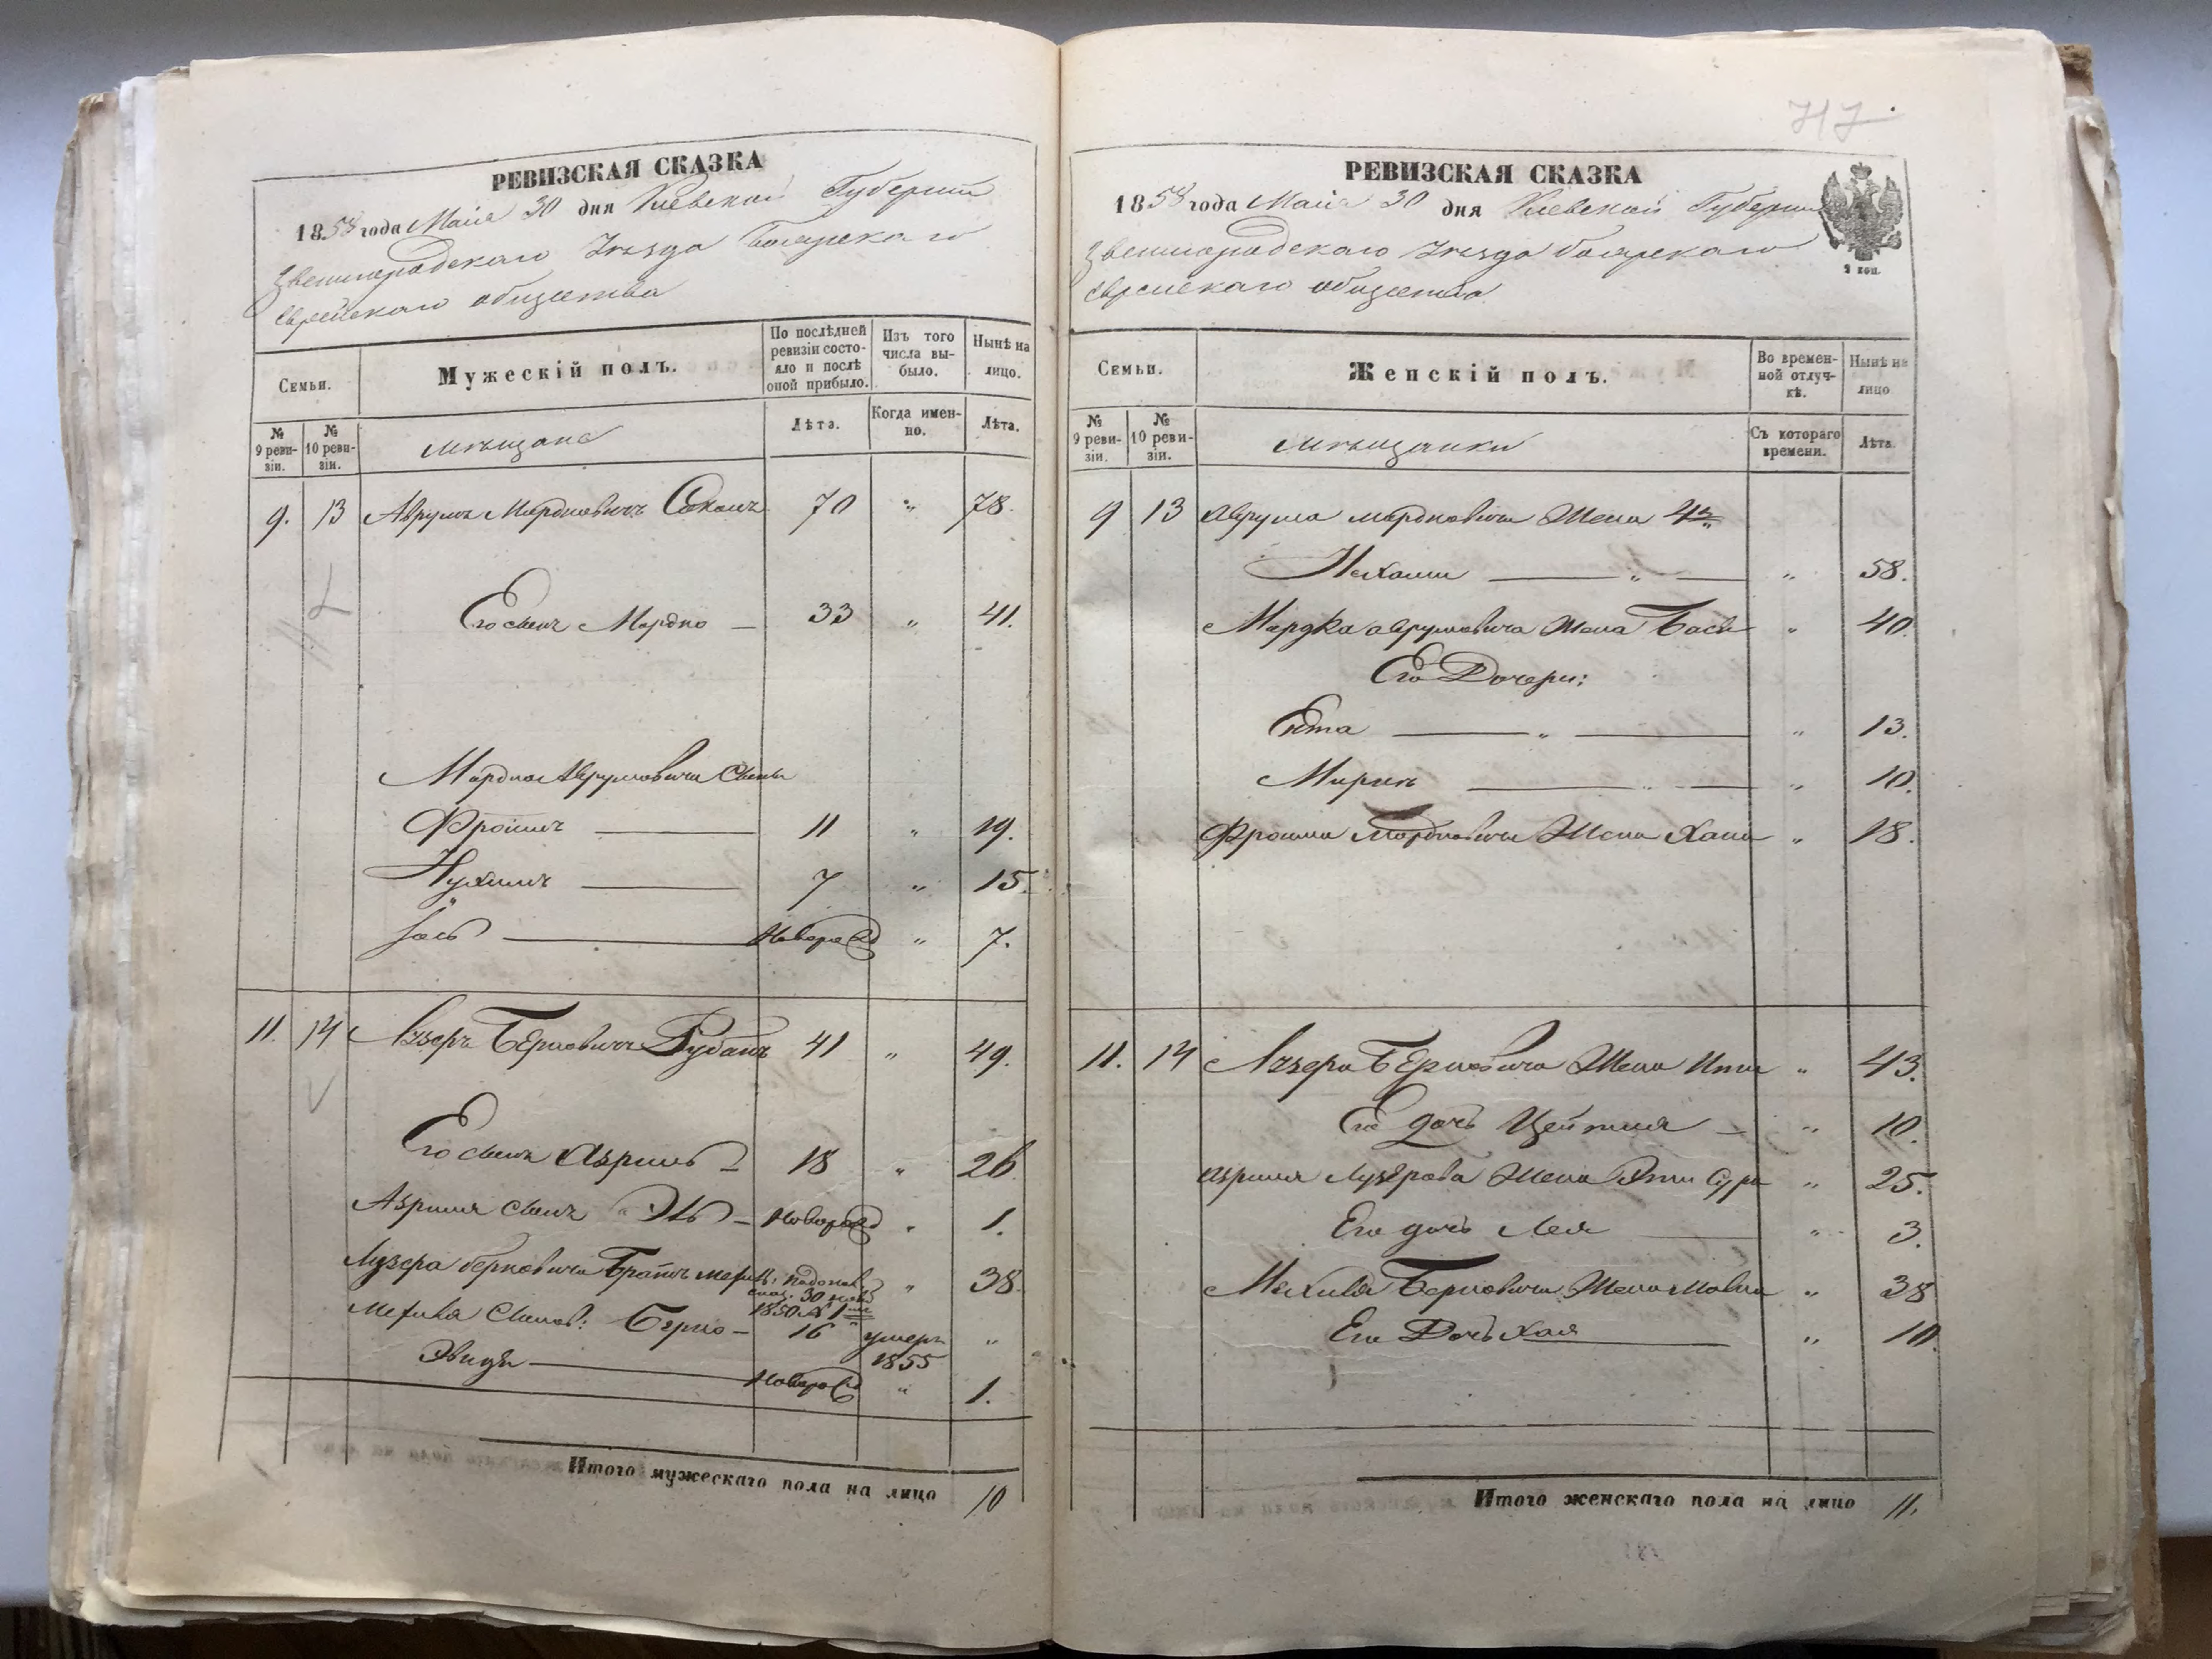 РЕВИЗСКАЯ СКАЗКА
1858 года Маія 30 дня Кіевской Губерніи
Звенигородскаго Уѣзда Боярскаго
Еврейскаго общества
Семьи.
Мужескій полъ.
По послѣдней ревизіи состояло и послѣ оной прибыло.
Изъ того числа выбыло.
Нынѣ на лицо.
№ 9 ревизіи.
№ 10 ревизіи.
мѣщане
Лѣта.
Когда именно.
Лѣта.
9. 13 Аврумъ Мордковичъ Соколъ 70 " 78.
Его сынъ Мордко — 33 " 41.
Мордка Аврумовича Сыны
Фроимъ — 11 " 19.
Нухимъ — 7 " 15.
Іось — Новорожд " 7.
11. 14 Лузеръ Берковичъ Рубанъ 41 " 49.
Его сынъ Азриль — 18 " 26.
Азриля сынъ Эль — Новорожд " 1.
Лузера Берковича Братъ 38.
Сынов: Берко — 16 умеръ "
1850 № 1
1855
— Новорожд " 1.
Итого мужескаго пола на лицо 10
717
РЕВИЗСКАЯ СКАЗКА
1858 года Маія 30 дня Кіевской Губерніи
Звенигородскаго Уѣзда Боярскаго
Еврейскаго общества
Семьи.
Женскій полъ.
Во временной отлучкѣ.
Нынѣ на лицо
№ 9 ревизіи.
№ 10 ревизіи.
мѣщанки
Съ котораго времени.
Лѣта
9 13 Аврума Мордковича Жена
Нехама — " — " 58.
Мордка Аврумовича Жена Бася " 40.
Его Дочери:
Ента — " — " 13.
— " — " 10.
Фроима Мордковича Жена Хана " 18.
11. 14 Лузера Берковича Жена " 43.
Его дочь — " 10.
Азриля Лузерова Жена Сура " 25.
Его дочь Лея — " 3.
Берковича Жена " 38
Его Дочь Хая — " 10.
Итого женскаго пола на лицо 11.